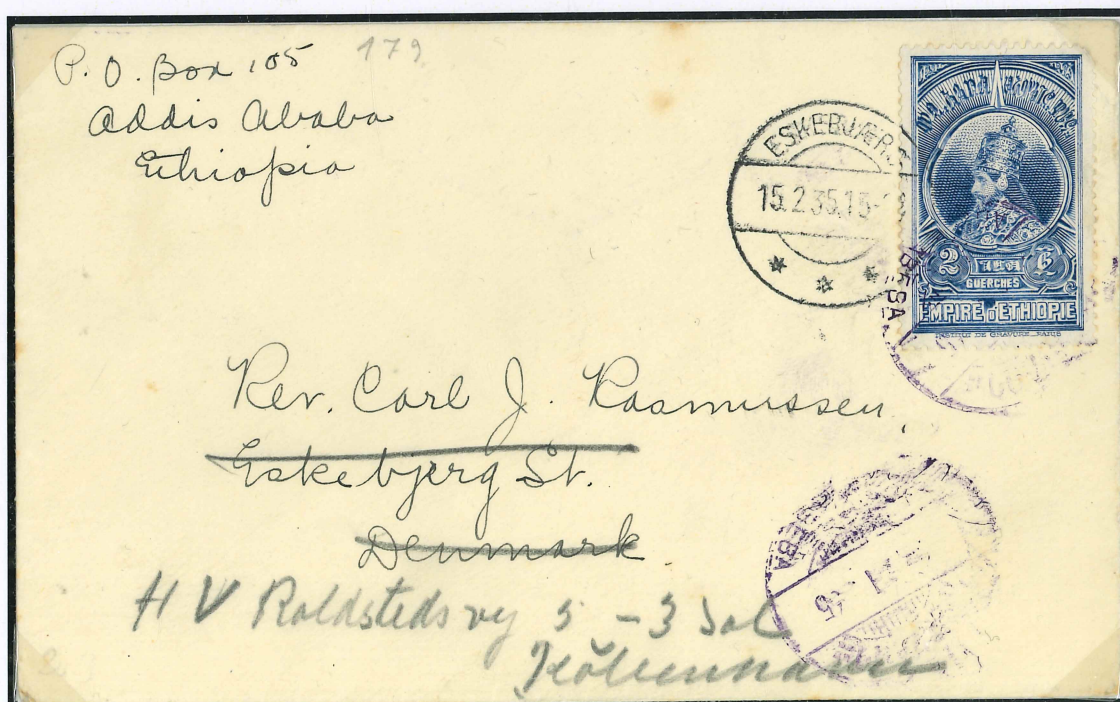 P. O. Box 105 179
Addis Ababa
Ethiopia
ESKEBJERG
15.2.35.15-
2
GUERCHES
EMPIRE D'ETHIOPIE
INSTITUT DE GRAVURE, PARIS
Rev. Carl J. Rasmussen
Eskebjerg St.
Denmark
H V Roldstedsvej 5 - 3 Sal
København